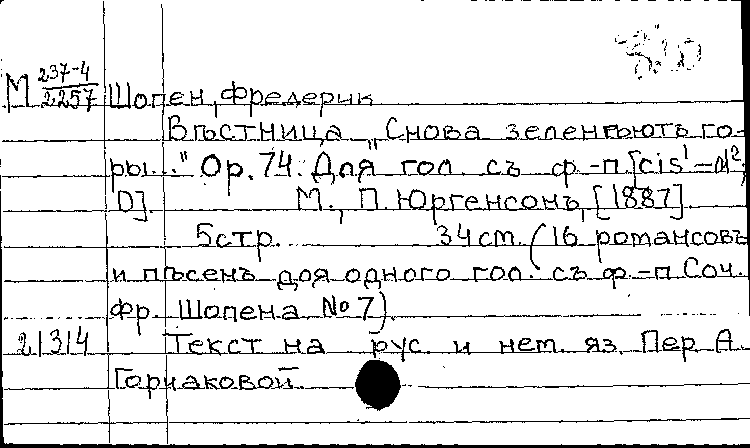 М 237-4
2257
Шопен, Фредерик
Вѣстница „Снова зеленѣютъ го-
ры..." Op. 74. Для гол. съ ф-п. [cis¹-д²;
D]. М., П. Юргенсонъ, [1887].
5стр. 34cm. (16 романсовъ
и пѣсенъ для одного гол. съ ф-п Соч.
Фр. Шопена № 7).
21314 Текст на рус. и нем. яз. Пер А.
Горчаковой.